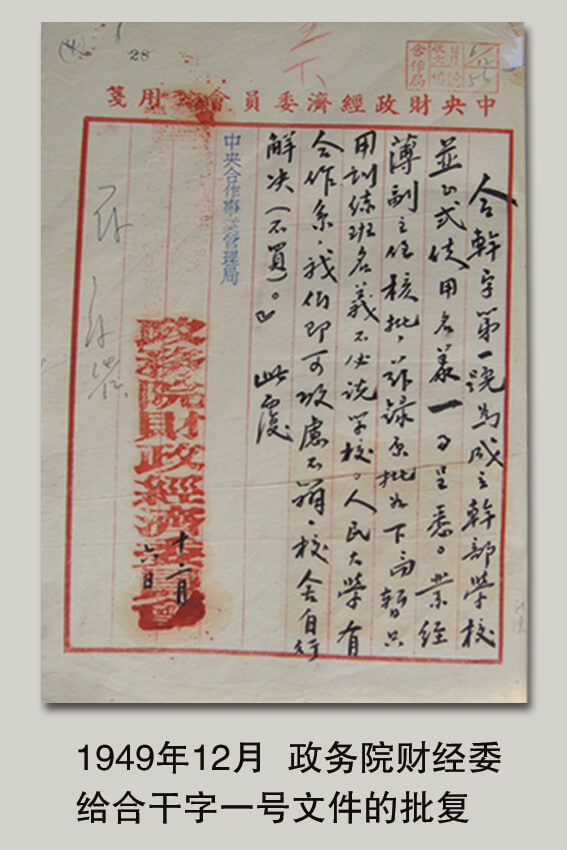 28
合作局
中央財政經濟委員會用箋
合幹字第一號為成立幹部學校
並正式使用名義一事呈悉。業經
薄副主任核批，茲錄原批如下暫只
用訓練班名義不必說學校。人民大學有
合作系，我们即可攷慮不辦，校舍自行
解决（不買）。』此覆
中央合作事業管理局
政務院財政經濟委員會
十二月
六日
1949年12月 政务院财经委
给合干字一号文件的批复